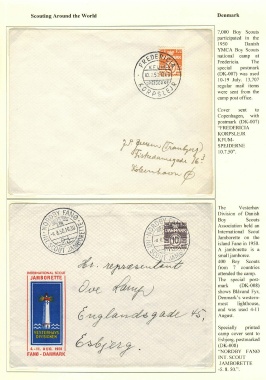 Scouting Around the World
Denmark
7,000 Boy Scouts
participated in the
1950 Danish
YMCA Boy Scouts
national camp at
Fredericia. The
special postmark
(DK-007) was used
10-19 July. 13,707
regular mail items
were sent from the
camp post office.
Cover sent to
Copenhagen, with
postmark (DK-007)
"FREDERICIA
KORPSLEJR
KFUM-
SPEJDERNE
10.7.50".
FREDERICIA
KORPSLEJR
København
The Vesterhav
Division of Danish
Boy Scouts
Association held an
International Scout
Jamborette on the
island Fanø in 1950.
A jamborette is a
small jamboree.
400 Boy Scouts
from 7 countries
attended the camp.
The special post-
mark (DK-008)
shows Blåvand Fyr,
Denmark's western-
most lighthouse,
and was used 4-11
August.
Specially printed
camp cover sent to
Esbjerg, postmarked
(DK-008)
"NORDBY FANØ
INT. SCOUT
JAMBORETTE
INTERNATIONAL SCOUT
JAMBORETTE
FANØ - DANMARK
NORDBY FANØ
Hr. repræsentant
Ove Lamp
Englandsgade 45
Esbjerg.